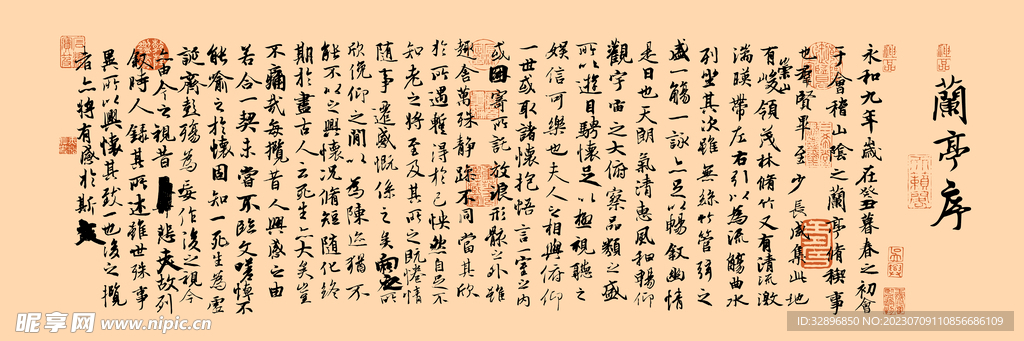 蘭亭序
永和九年歲在癸丑暮春之初會
于會稽山陰之蘭亭脩稧事
也群賢畢至少長咸集此地
崇山
有峻領茂林脩竹又有清流激
湍暎帶左右引以為流觴曲水
列坐其次雖無絲竹管弦之
盛一觴一詠亦足以暢敘幽情
是日也天朗氣清惠風和暢仰
觀宇宙之大俯察品類之盛
所以遊目騁懷足以極視聽之
娛信可樂也夫人之相與俯仰
一世或取諸懷抱悟言一室之內
或因寄所託放浪形骸之外雖
趣舍萬殊靜躁不同當其欣
於所遇蹔得於己怏然自足不
知老之將至及其所之既惓情
隨事遷感慨係之矣向之所
欣俛仰之閒以為陳迹猶不
能不以之興懷況脩短隨化終
期於盡古人云死生亦大矣豈
不痛哉每攬昔人興感之由
若合一契未嘗不臨文嗟悼不
能喻之於懷固知一死生為虛
誕齊彭殤為妄作後之視今
亦由今之視昔悲夫故列
敘時人錄其所述雖世殊事
異所以興懷其致一也後之攬
者亦將有感於斯文
昵享网 www.nipic.cn
ID:32896850 NO:20230709110856686109